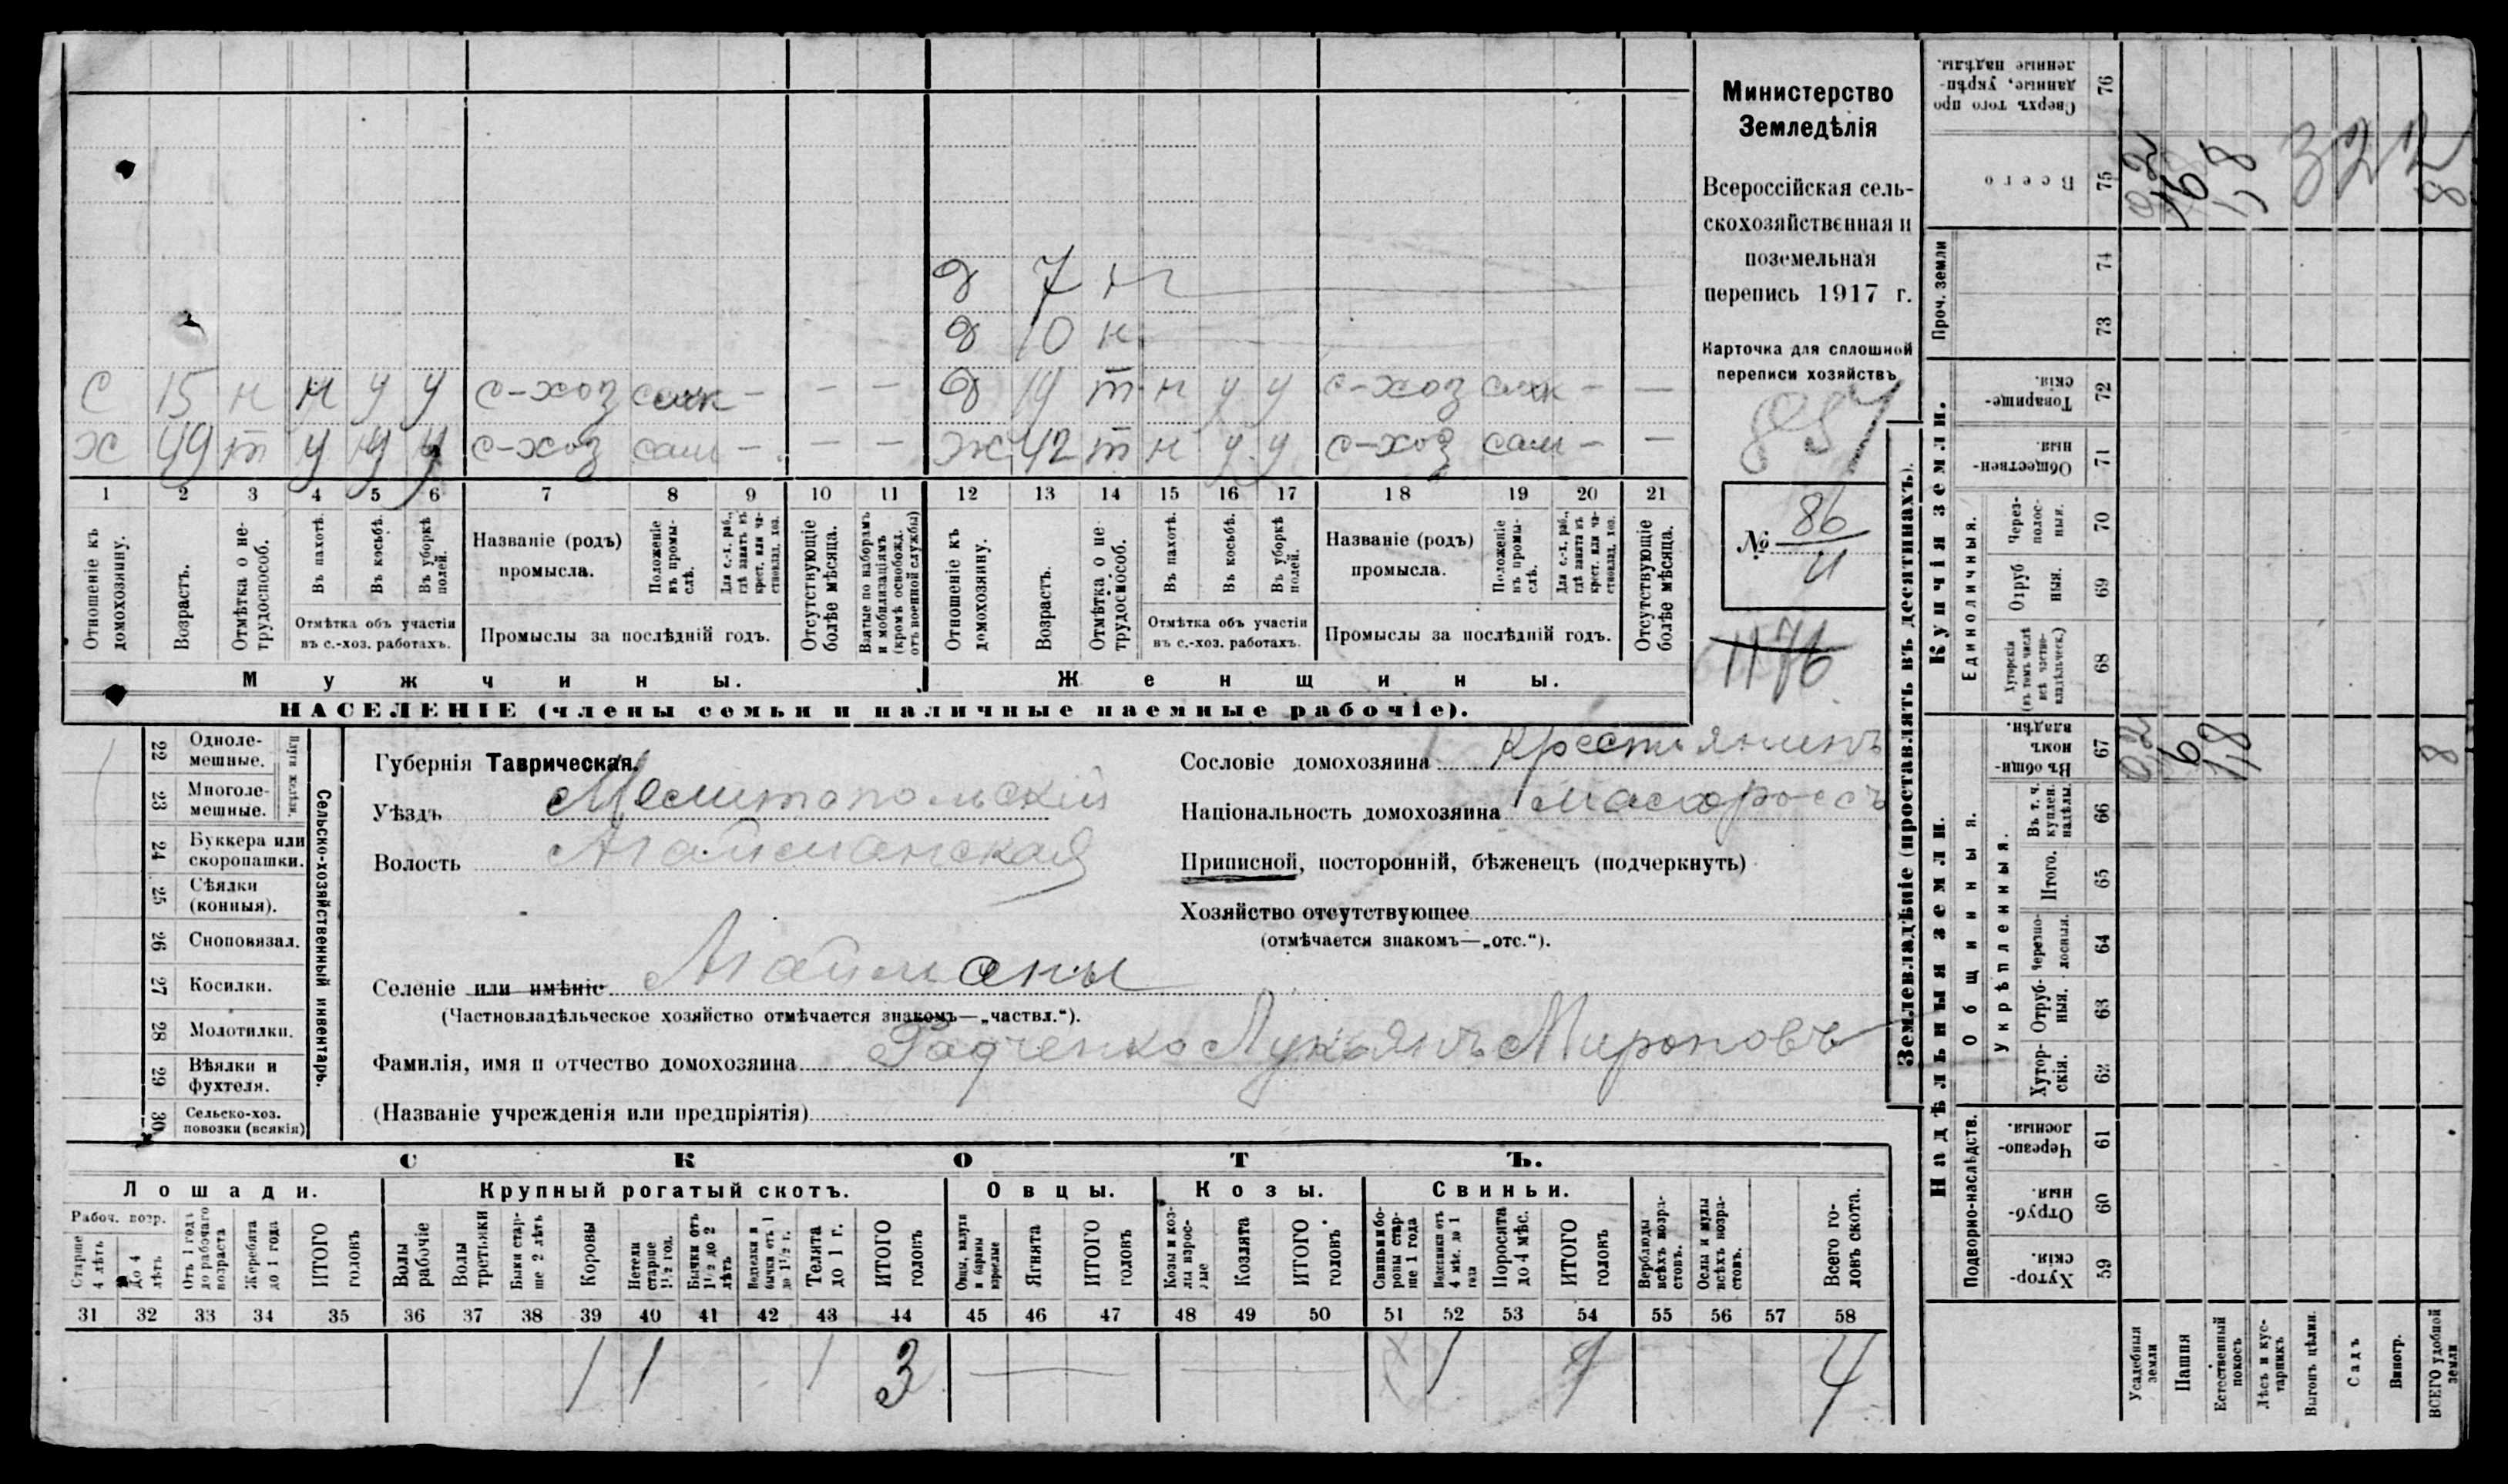 Министерство
Земледѣлія
Всероссійская сель-
скохозяйственная и
поземельная
перепись 1917 г.
Карточка для сплошной
переписи хозяйствъ
857
№ 86
1176
д 7 н
д 10 н
с 15 н н у у с-хоз – – –
д 19 т н у у с-хоз – –
х 49 т у у у с-хоз сам – – –
ж 42 т н у у с-хоз сам – –
1 2 3 4 5 6 7 8 9 10 11 12 13 14 15 16 17 18 19 20 21
Отношеніе къ домохозяину.
Возрастъ.
Отмѣтка о не-трудоспособ.
Въ пахотѣ.
Въ косьбѣ.
Въ уборкѣ полей.
Отмѣтка объ участіи
въ с.-хоз. работахъ.
Названіе (родъ)
промысла.
Положеніе въ промы-слѣ.
Для с.-х. раб., гдѣ занятъ въ крест. или ча-стновлад. хоз.
Промыслы за послѣдній годъ.
Отсутствующіе болѣе мѣсяца.
Взятые по наборамъ и мобилизаціямъ (кромѣ освобожд. отъ военной службы)
Отношеніе къ домохозяину.
Возрастъ.
Отмѣтка о не-трудоспособ.
Въ пахотѣ.
Въ косьбѣ.
Въ уборкѣ полей.
Отмѣтка объ участіи
въ с.-хоз. работахъ.
Названіе (родъ)
промысла.
Положеніе въ промы-слѣ.
Для с.-х. раб., гдѣ занята въ крест. или ча-стновлад. хоз.
Промыслы за послѣдній годъ.
Отсутствующіе болѣе мѣсяца.
Мужчины.
Женщины.
НАСЕЛЕНІЕ (члены семьи и наличные наемные рабочіе).
Сельско-хозяйственный инвентарь.
Плуги желѣзн.
22 Одноле-
мешные.
23 Многоле-
мешные.
24 Буккера или
скоропашки.
25 Сѣялки
(конныя).
26 Сноповязал.
27 Косилки.
28 Молотилки.
29 Вѣялки и
фухтеля.
30 Сельско-хоз.
повозки (всякія)
Губернія Таврическая.
Уѣздъ Мелитопольскій
Волость Агайманская
Селеніе или имѣніе Агайманы
(Частновладѣльческое хозяйство отмѣчается знакомъ—„частвл.“).
Фамилія, имя и отчество домохозяина Радченко Лукьянъ Мироновъ
(Названіе учрежденія или предпріятія)
Сословіе домохозяина Крестьянинъ
Національность домохозяина малороссъ
Приписной, посторонній, бѣженецъ (подчеркнуть)
Хозяйство отсутствующее
(отмѣчается знакомъ—„отс.“).
СКОТЪ.
Лошади.
Крупный рогатый скотъ.
Овцы.
Козы.
Свиньи.
Рабоч. возр.
Старше 4 лѣтъ
До 4 лѣтъ
Отъ 1 года до рабочаго возраста
Жеребята до 1 года
ИТОГО головъ
Волы рабочіе
Волы третьяки
Быки стар-ше 2 лѣтъ
Коровы
Нетели старше 1½ год.
Бычки отъ 1½ до 2 лѣтъ
Нетелки и бычки отъ 1 до 1½ г.
Телята до 1 г.
ИТОГО головъ
Овцы, валухи и бараны взрослые
Ягнята
ИТОГО головъ
Козы и коз-лы взрос-лые
Козлята
ИТОГО головъ
Свиньи и бо-ровы стар-ше 1 года
Подсвинки отъ 4 мѣс. до 1 года
Поросята до 4 мѣс.
ИТОГО головъ
Верблюды всѣхъ возра-стовъ.
Ослы и мулы всѣхъ возра-стовъ.
Всего го-ловъ скота.
31 32 33 34 35 36 37 38 39 40 41 42 43 44 45 46 47 48 49 50 51 52 53 54 55 56 57 58
1 1 1 3 — — 1 1 4
Землевладѣніе (проставлять въ десятинахъ).
Купчія земли.
Надѣльныя земли.
Проч. земли
Сверхъ того про-данные, укрѣп-ленные надѣлы. 76
Всего 75
74
73
Товарище-скія. 72
Обществен-ныя. 71
Единоличныя.
Через-полос-ныя. 70
Отруб-ныя. 69
Хуторскія (въ томъ числѣ всѣ частно-владѣльческ.) 68
Общинныя.
Въ общин-номъ владѣн. 67
Укрѣпленныя.
Въ т. ч. куплен. надѣлы. 66
Итого. 65
Черезпо-лосныя. 64
Отруб-ныя. 63
Хутор-скія. 62
Подворно-наслѣдств.
Черезпо-лосныя. 61
Отруб-ныя. 60
Хутор-скія. 59
Усадебныя земли
Пашня
Естественный покосъ
Лѣсъ и кус-тарникъ
Выгонъ цѣлин.
Садъ
Виногр.
ВСЕГО удобной земли
0,2 6 1,8 8